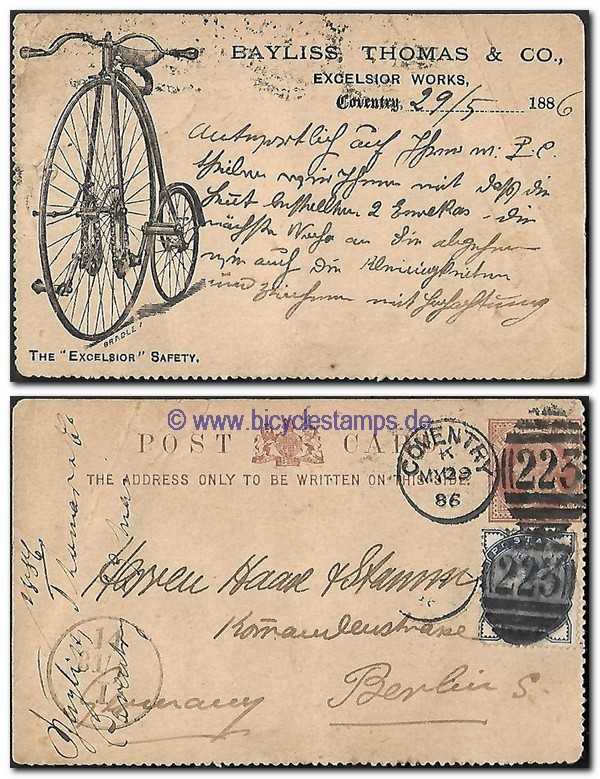 BAYLISS, THOMAS & CO.,
EXCELSIOR WORKS,
Coventry, 29/5 1886
Antwortlich auf Ihre w: P.C.
theilen wir Ihnen mit daß die
2 Eurekas die
nächste Woche an Sie abgehen
auch die Kleinigkeiten
und zeichnen mit Hochachtung
BRADLEY
THE "EXCELSIOR" SAFETY.
© www.bicyclestamps.de
POST CARD
THE ADDRESS ONLY TO BE WRITTEN ON THIS SIDE.
COVENTRY
K
MY29
86
223
223
Herren Haase & Stamm
Kommandantenstrasse
Berlin S.
Germany
1886
Bayliss Thomas & Co
Coventry